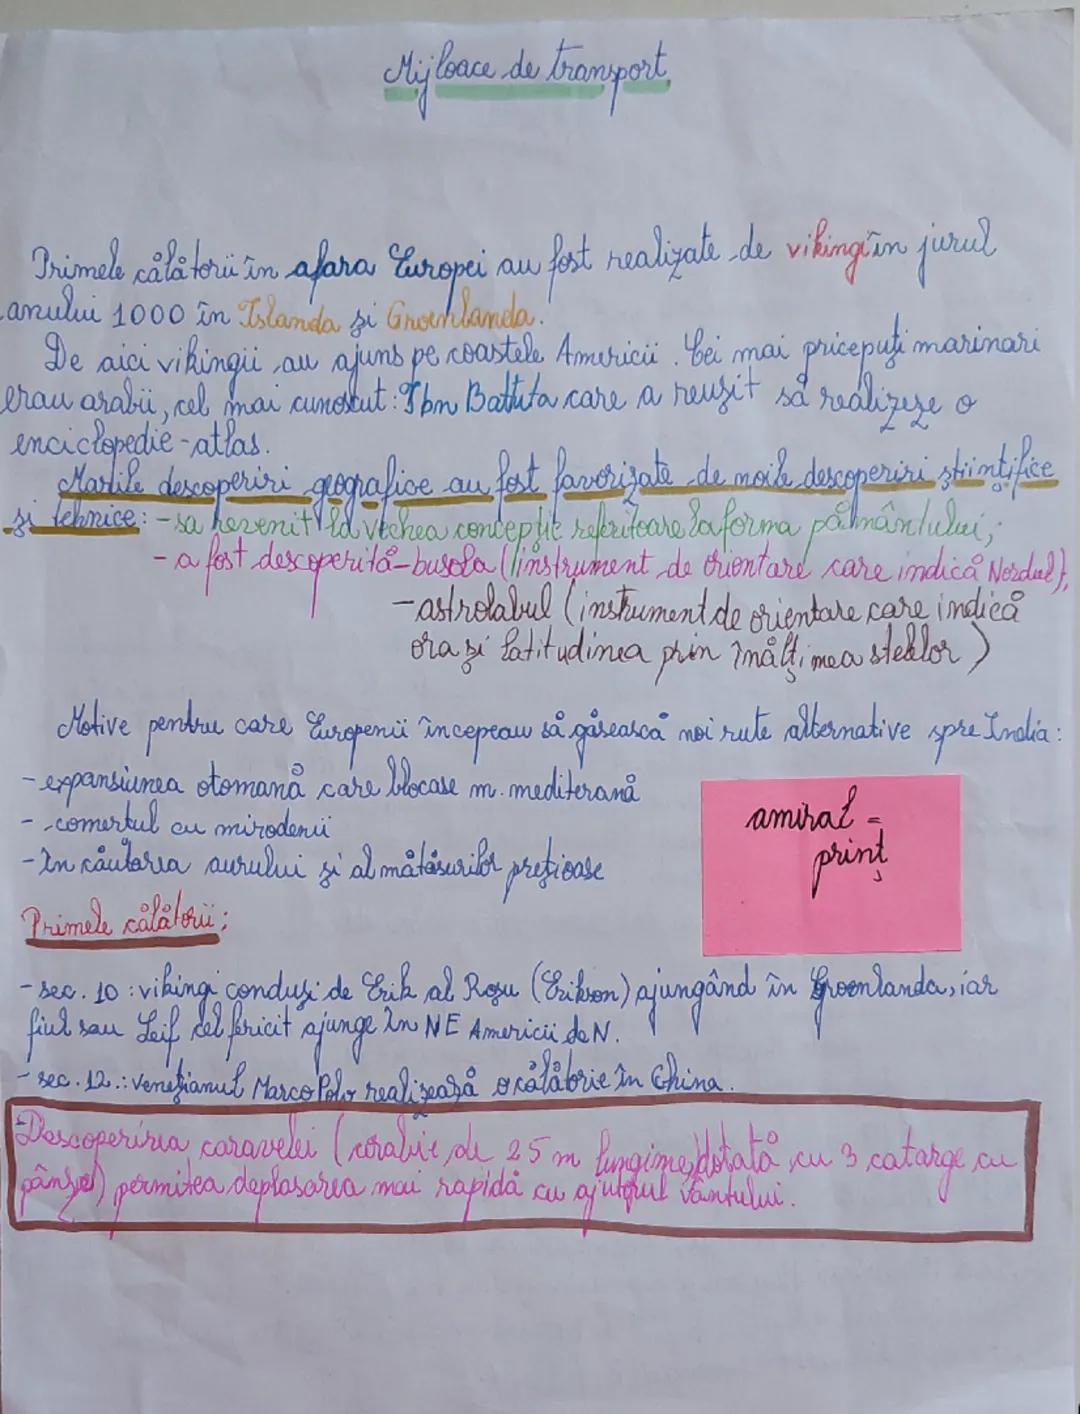 Mijloace de transport
Primele călătorii în afara Europei au fost realizate de vikingi în jurul
anului 1000 în Islanda și Groenlanda.
De aici vikingii au ajuns pe coastele Americii. Cei mai pricepuți marinari
erau arabii, cel mai cunoscut: Ibn Battuta care a reușit să realizeze o
enciclopedie-atlas.
Marile descoperiri geografice au fost favorizate de noile descoperiri științifice
și tehnice: -sa revenit la vechea concepție referitoare la forma pământului;
- a fost descoperită-busola (instrument de orientare care indică Nordul),
-astrolabul (instrument de orientare care indică
ora și latitudinea prin înălțimea stelelor)
Motive pentru care Europenii începeau să găsească noi rute alternative spre India:
-expansiunea otomană care blocase m. mediterană
- comerțul cu mirodenii
-În căutarea aurului și al mătăsurilor prețioase
amiral =
prinț
Primele călătorii:
-sec. 10: vikingi conduși de Erik al Roșu (Erikson) ajungând în Groenlanda, iar
fiul sau Leif cel fericit ajunge în NE Americii de N.
- sec. 12.: venețianul Marco Polo realizează o călătorie în China.
Descoperirea caravelei (corabie de 25 m lungime, dotată cu 3 catarge cu
pânze) permitea deplasarea mai rapidă cu ajutorul vântului.